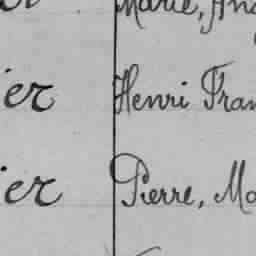 Marie, An
ier Henri Fran
ier Pierre, Ma